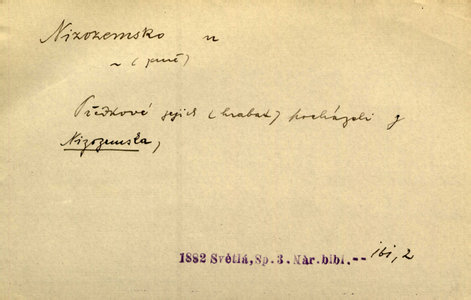 Nizozemsko n
~ (jmé)
Předkové jejich (hrabat) pocházeli z
Nizozemska,
1882 Světlá, Sp. 3. Nár. bibl. -- 161, 2